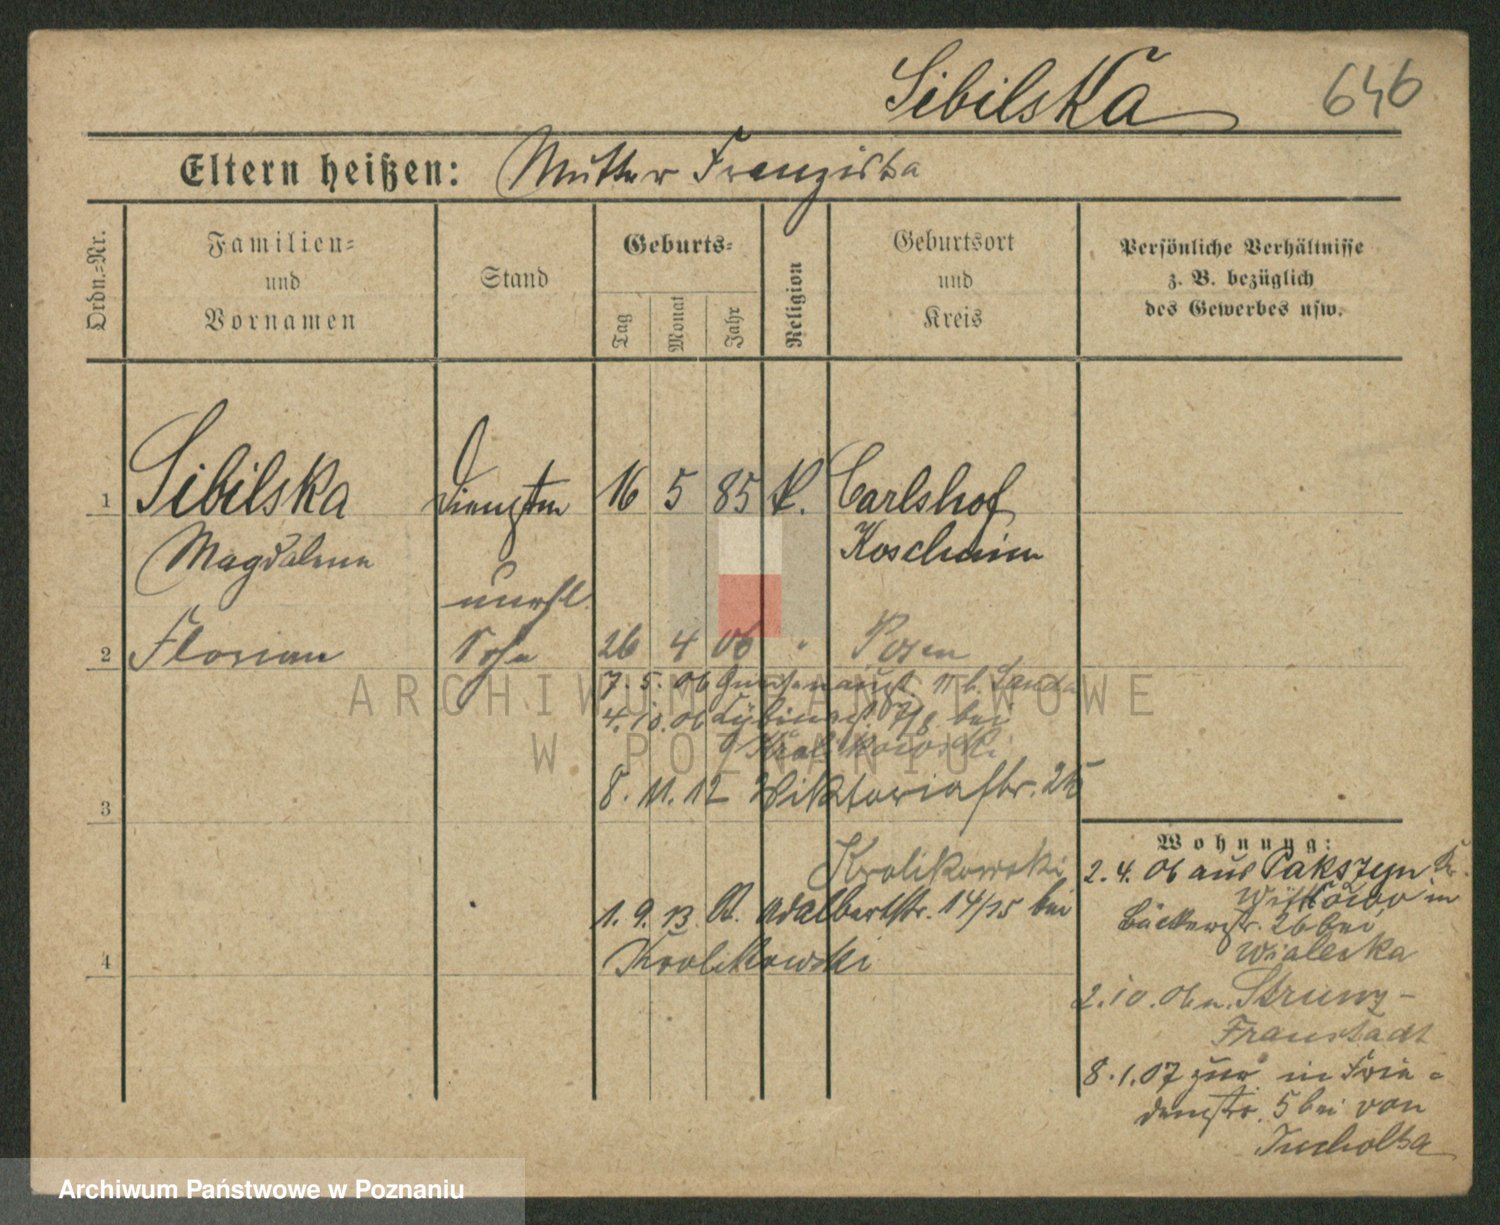 Sibilska 646
Eltern heißen: Mutter Franziska
Ordn.=Nr.
Familien=
und
Vornamen
Stand
Geburts=
Tag
Monat
Jahr
Religion
Geburtsort
und
Kreis
Persönliche Verhältnisse
z. B. bezüglich
des Gewerbes usw.
1 Sibilska 16 5 85 k. Carlshof
Magdalena Koschmin
unehl.
2 Florian Sohn 26 4 06 " Posen
7. 5. 06
4. 10. 06 bei
Krolikowski
8. 11. 12 Viktoriastr.
3
Krolikowski
1. 9. 13 Adalbertstr. 14/15 bei
Krolikowski
4
Wohnung:
2. 4. 06 aus Pakszyn Kr.
Witkowo in
Bäckerstr. 26 bei
Wialeska
2. 10. 06 n.
Fraustadt
8. 1. 07 zur. in Frie=
denstr. 5 bei von
Tucholka
ARCHIWUM PAŃSTWOWE
W POZNANIU
Archiwum Państwowe w Poznaniu